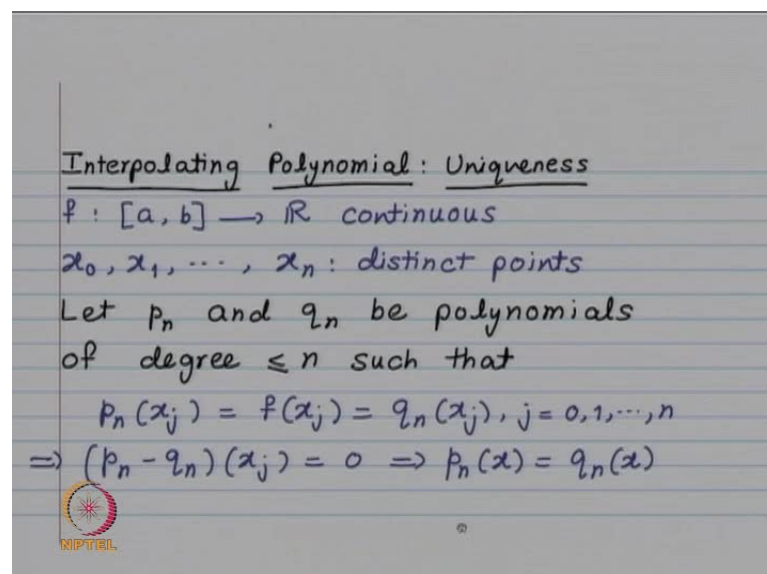 Interpolating Polynomial : Uniqueness
f : [a, b] → ℝ continuous
x₀, x₁, ⋯, xₙ : distinct points
Let pₙ and qₙ be polynomials
of degree ≤ n such that
pₙ(xⱼ) = f(xⱼ) = qₙ(xⱼ), j = 0, 1, ⋯, n
⇒ (pₙ - qₙ)(xⱼ) = 0 ⇒ pₙ(x) = qₙ(x)
NPTEL